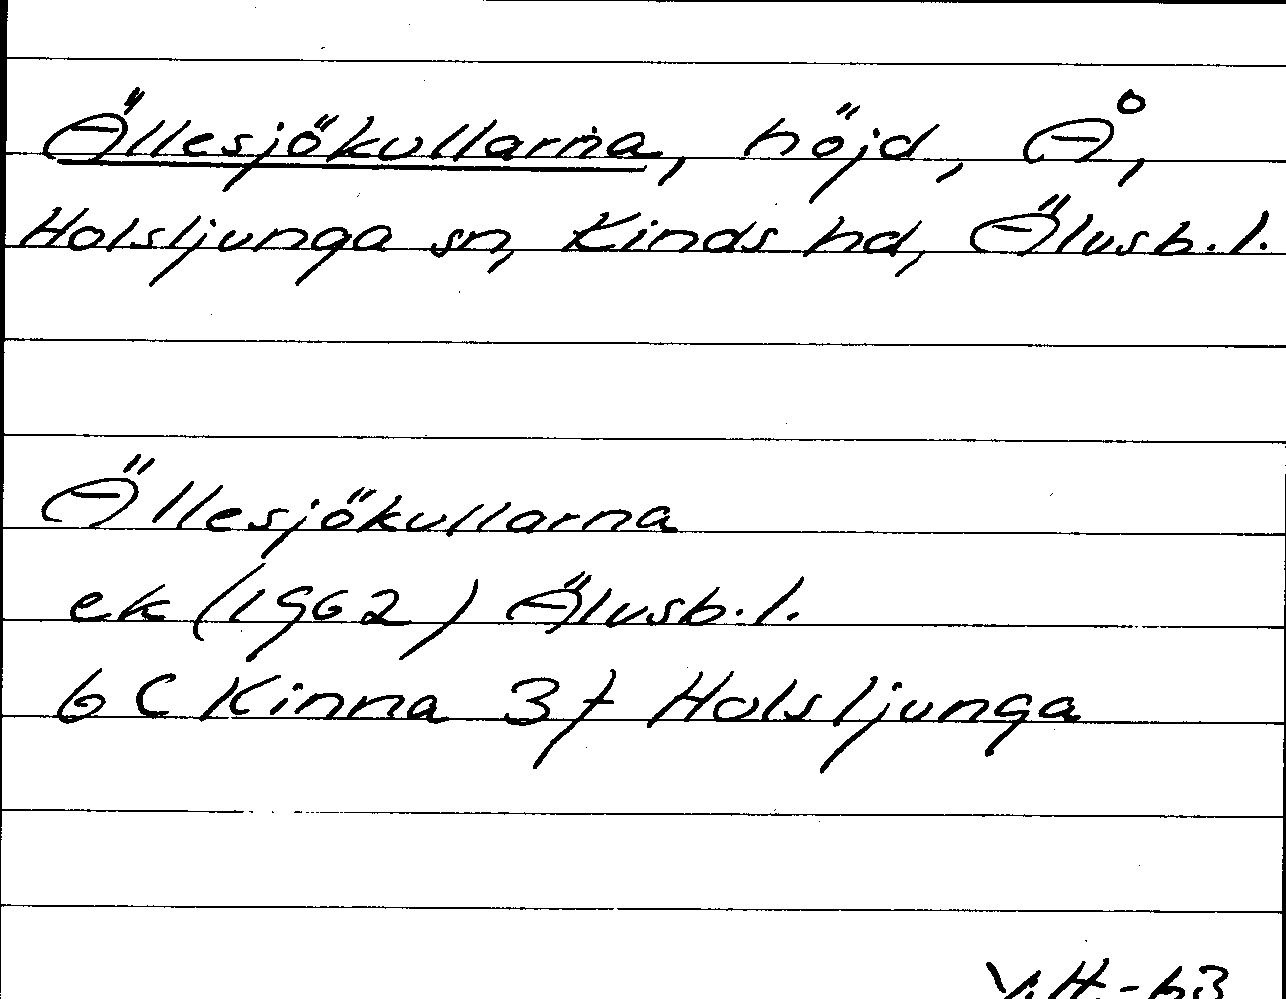 Ällesjökullarna, höjd, Å,
Holsljunga sn, Kinds hd, Älvsb. l.
Ällesjökullarna
ek (1962) Älvsb. l.
6 C Kinna 3f Holsljunga